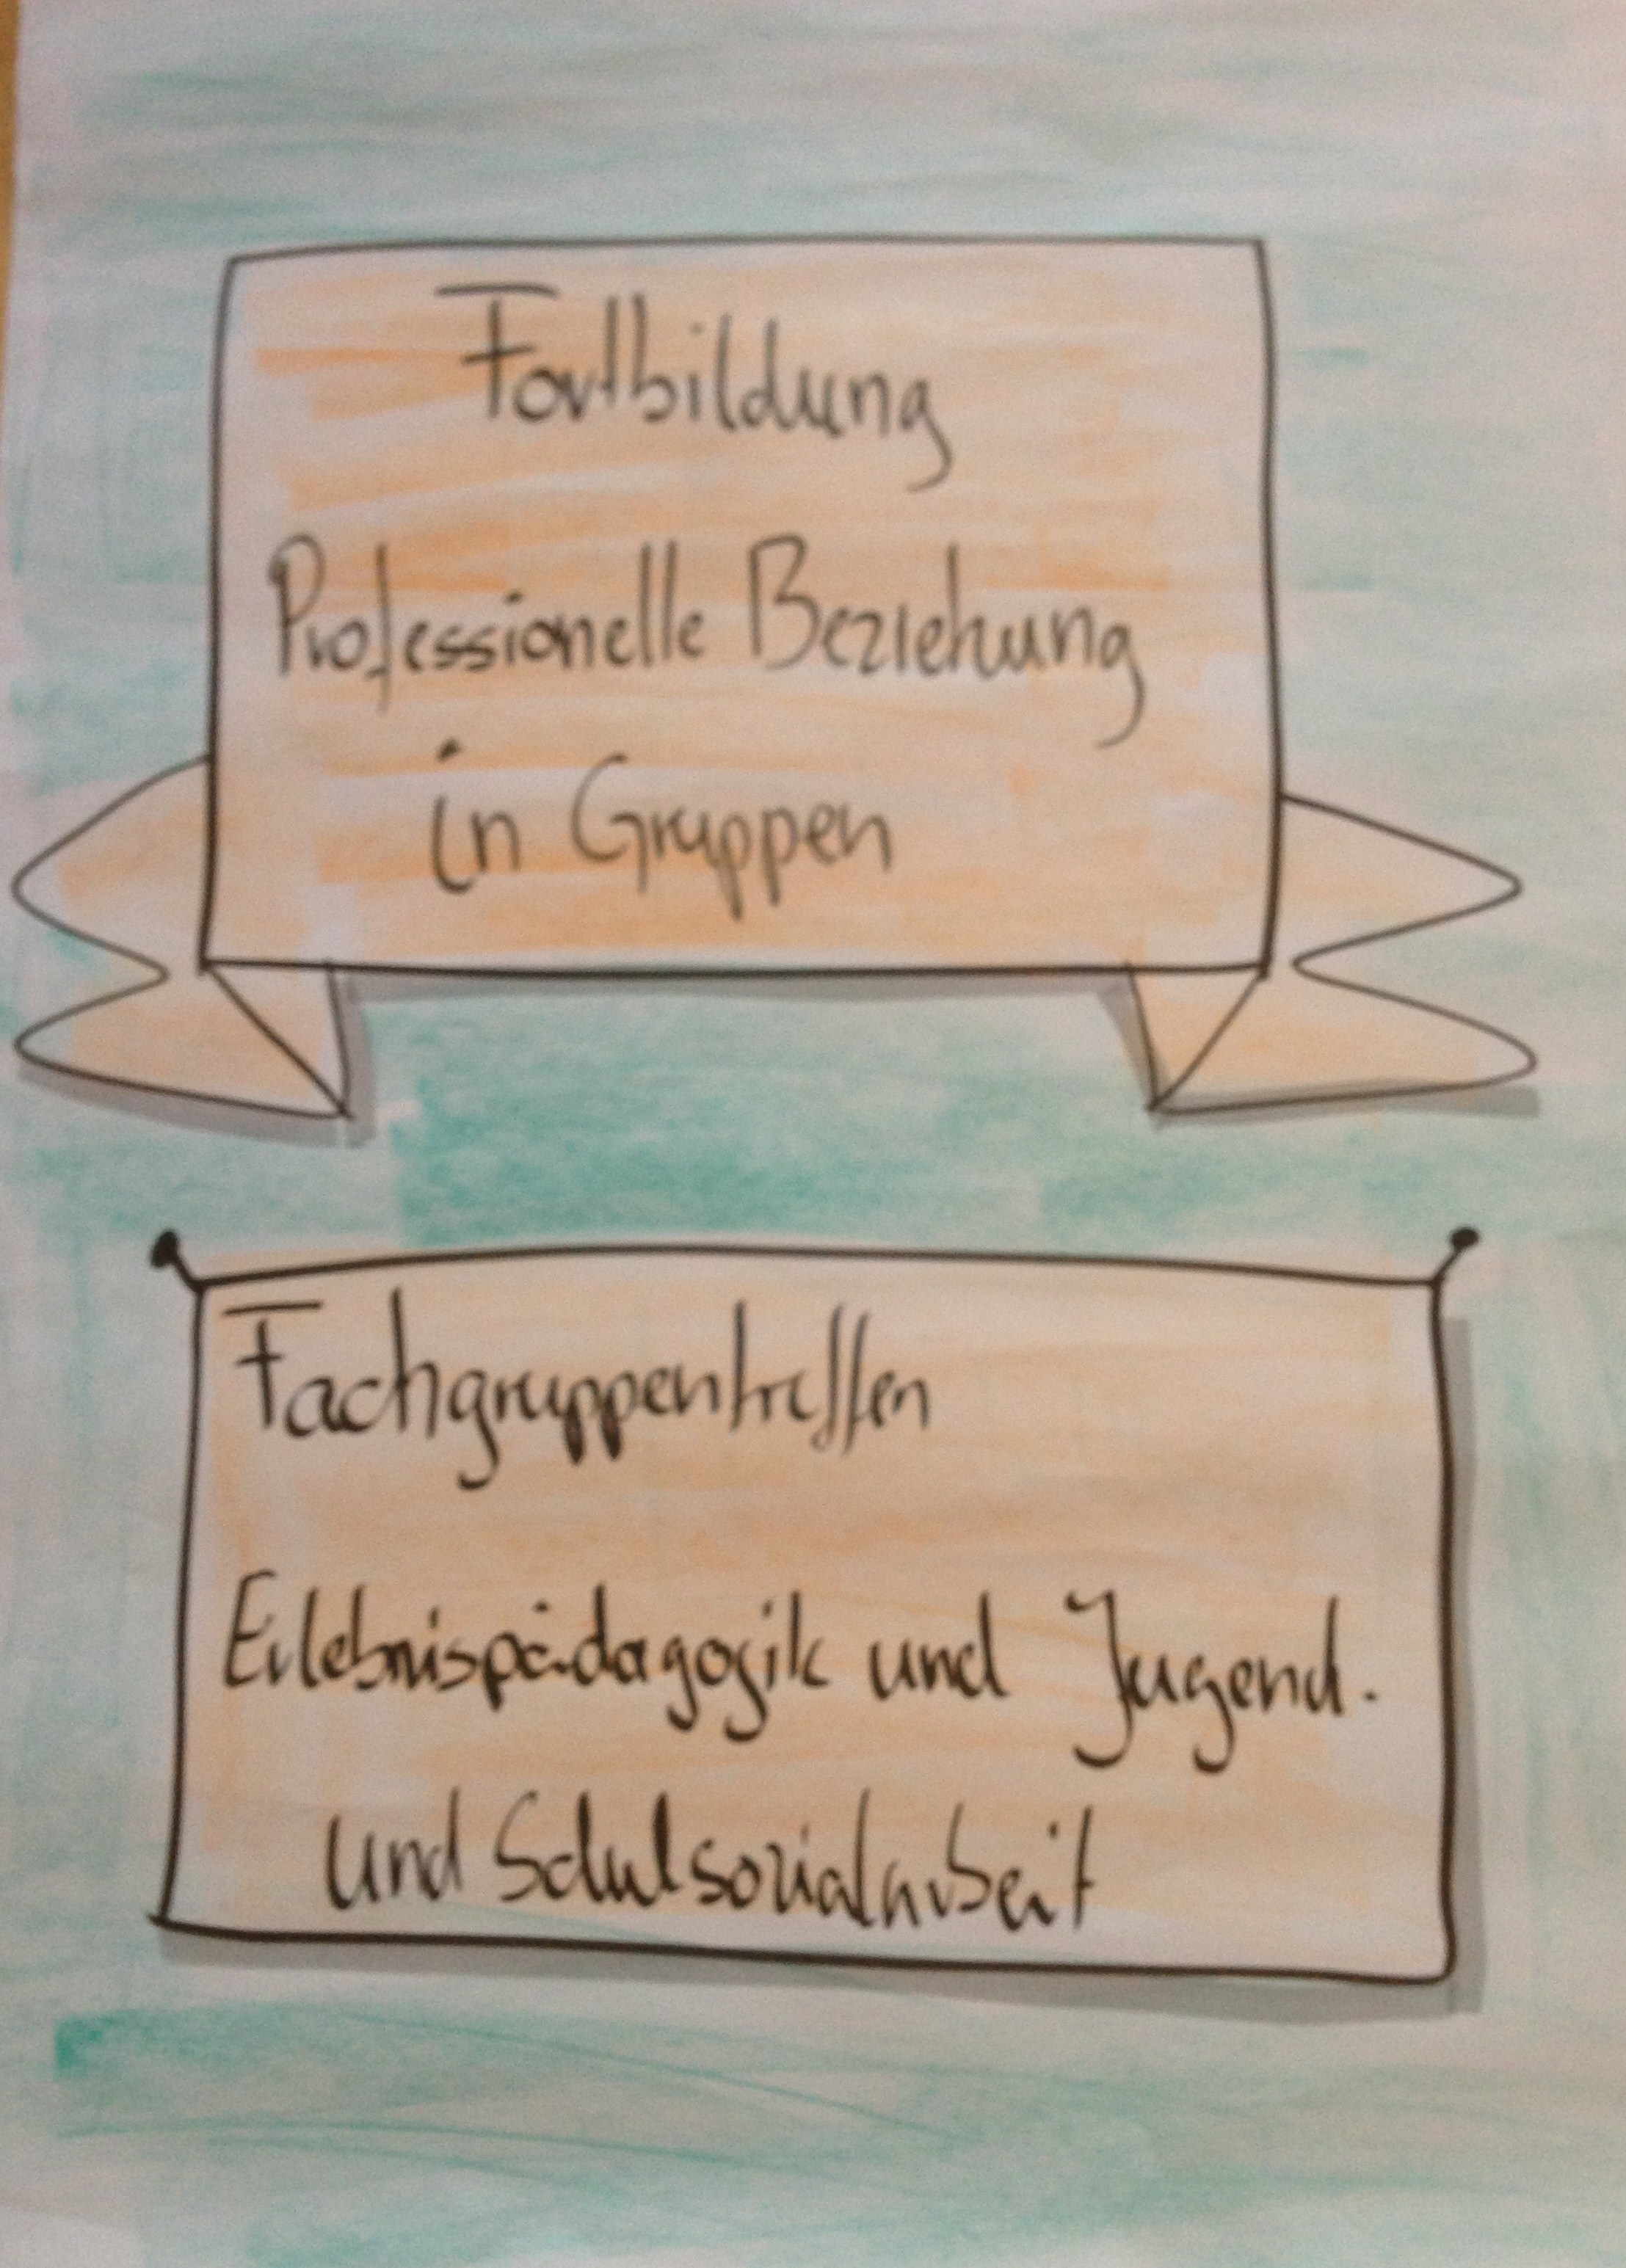 Fortbildung
Professionelle Beziehung
in Gruppen
Fachgruppentreffen
Erlebnispädagogik und Jugend-
und Schulsozialarbeit